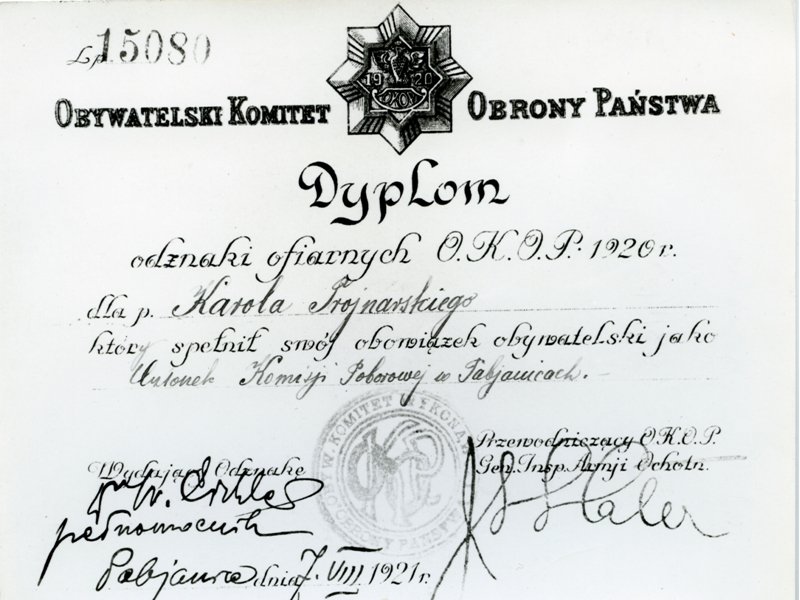 Lp. 15080
19 20
OKOP
OBYWATELSKI KOMITET OBRONY PAŃSTWA
Dyplom
odznaki ofiarnych O.K.O.P. 1920 r.
dla p. Karola Trojnarskiego
który spełnił swój obowiązek obywatelski jako
Członek Komisji Poborowej w Pabjanicach.
W. KOMITET WYKONAW
OBRONY PAŃSTWA
Przewodniczący O.K.O.P.
Gen. Insp. Armji Ochotn.
Wydający Odznakę
J Haller
pełnomocnik
Pabjanice dnia 7. VIII 1921 r.